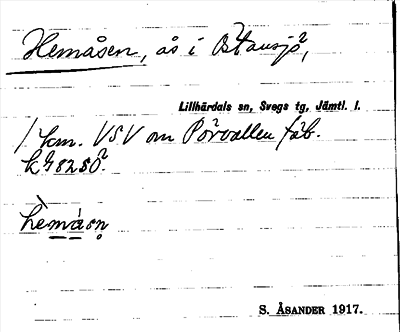 Hemåsen, ås i Östansjö,
Lillhärdals sn, Svegs tg, Jämtl. l.
1 km. VSV om Pörvallen fäb.
hèmåsn̥
S. ÅSANDER 1917.